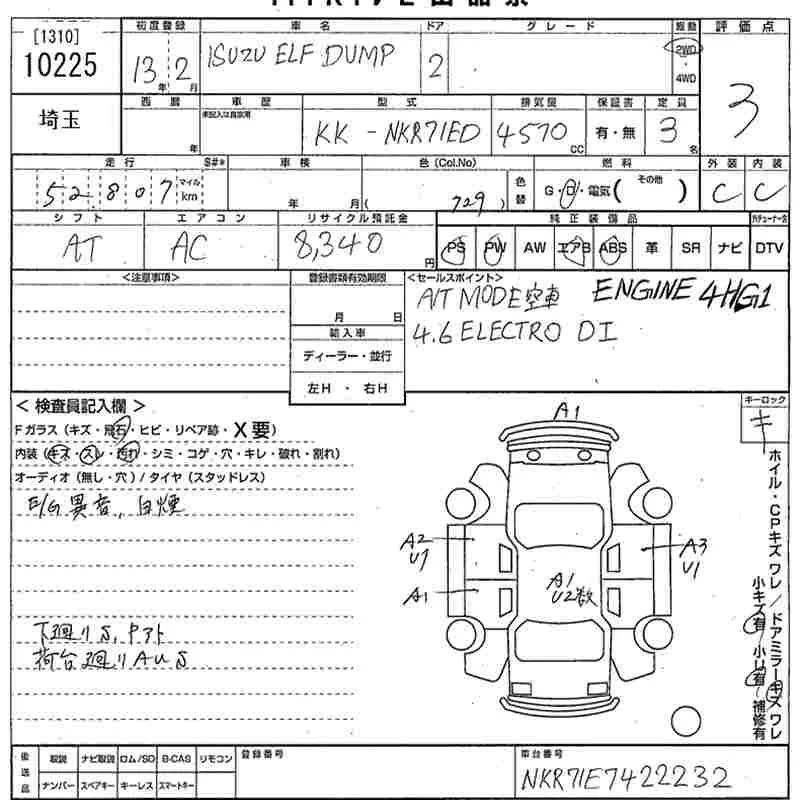 [1310]
10225
初度登録
車名
ドア
グレード
駆動
評価点
13年 2月
ISUZU ELF DUMP
2
2WD
4WD
3
埼玉
西暦
年
車歴
未記入は自家用
型式
排気量
保証書
定員
KK-NKR71ED
4570 CC
有・無
3名
走行
S#*
車検
色(Col.No)
燃料
外装
内装
52,807
マイル
km
年 月
( 729 )
色替
G・D・電気( その他 )
C
C
シフト
エアコン
リサイクル預託金
純正装備品
AT
AC
8,340円
PS PW AW エアB ABS 革 SR ナビ DTV
<注意事項>
登録書類有効期限
<セールスポイント>
月 日
輸入車
ディーラー・並行
左H・右H
A/T MODE空車 ENGINE 4HG1
4.6 ELECTRO DI
<検査員記入欄>
Fガラス(キズ・飛石・ヒビ・リペア跡・X要)
内装(キズ・スレ・汚れ・シミ・コゲ・穴・キレ・破れ・割れ)
オーディオ(無し・穴)/タイヤ(スタッドレス)
E/G異音,白煙
下廻りS,Pアト
荷台廻りAUS
キーロック
キ
A1
A2
U1
A3
U1
A1
A1
U2数
ホイル・CPキズ ワレ/ドアミラーキズ ワレ
小キズ有 小U有 補修有
後送品
取説 ナビ取説 ロム/SD B-CAS リモコン
ナンバー スペアキー キーレス スマートキー
登録番号
車台番号
NKR71E7422232